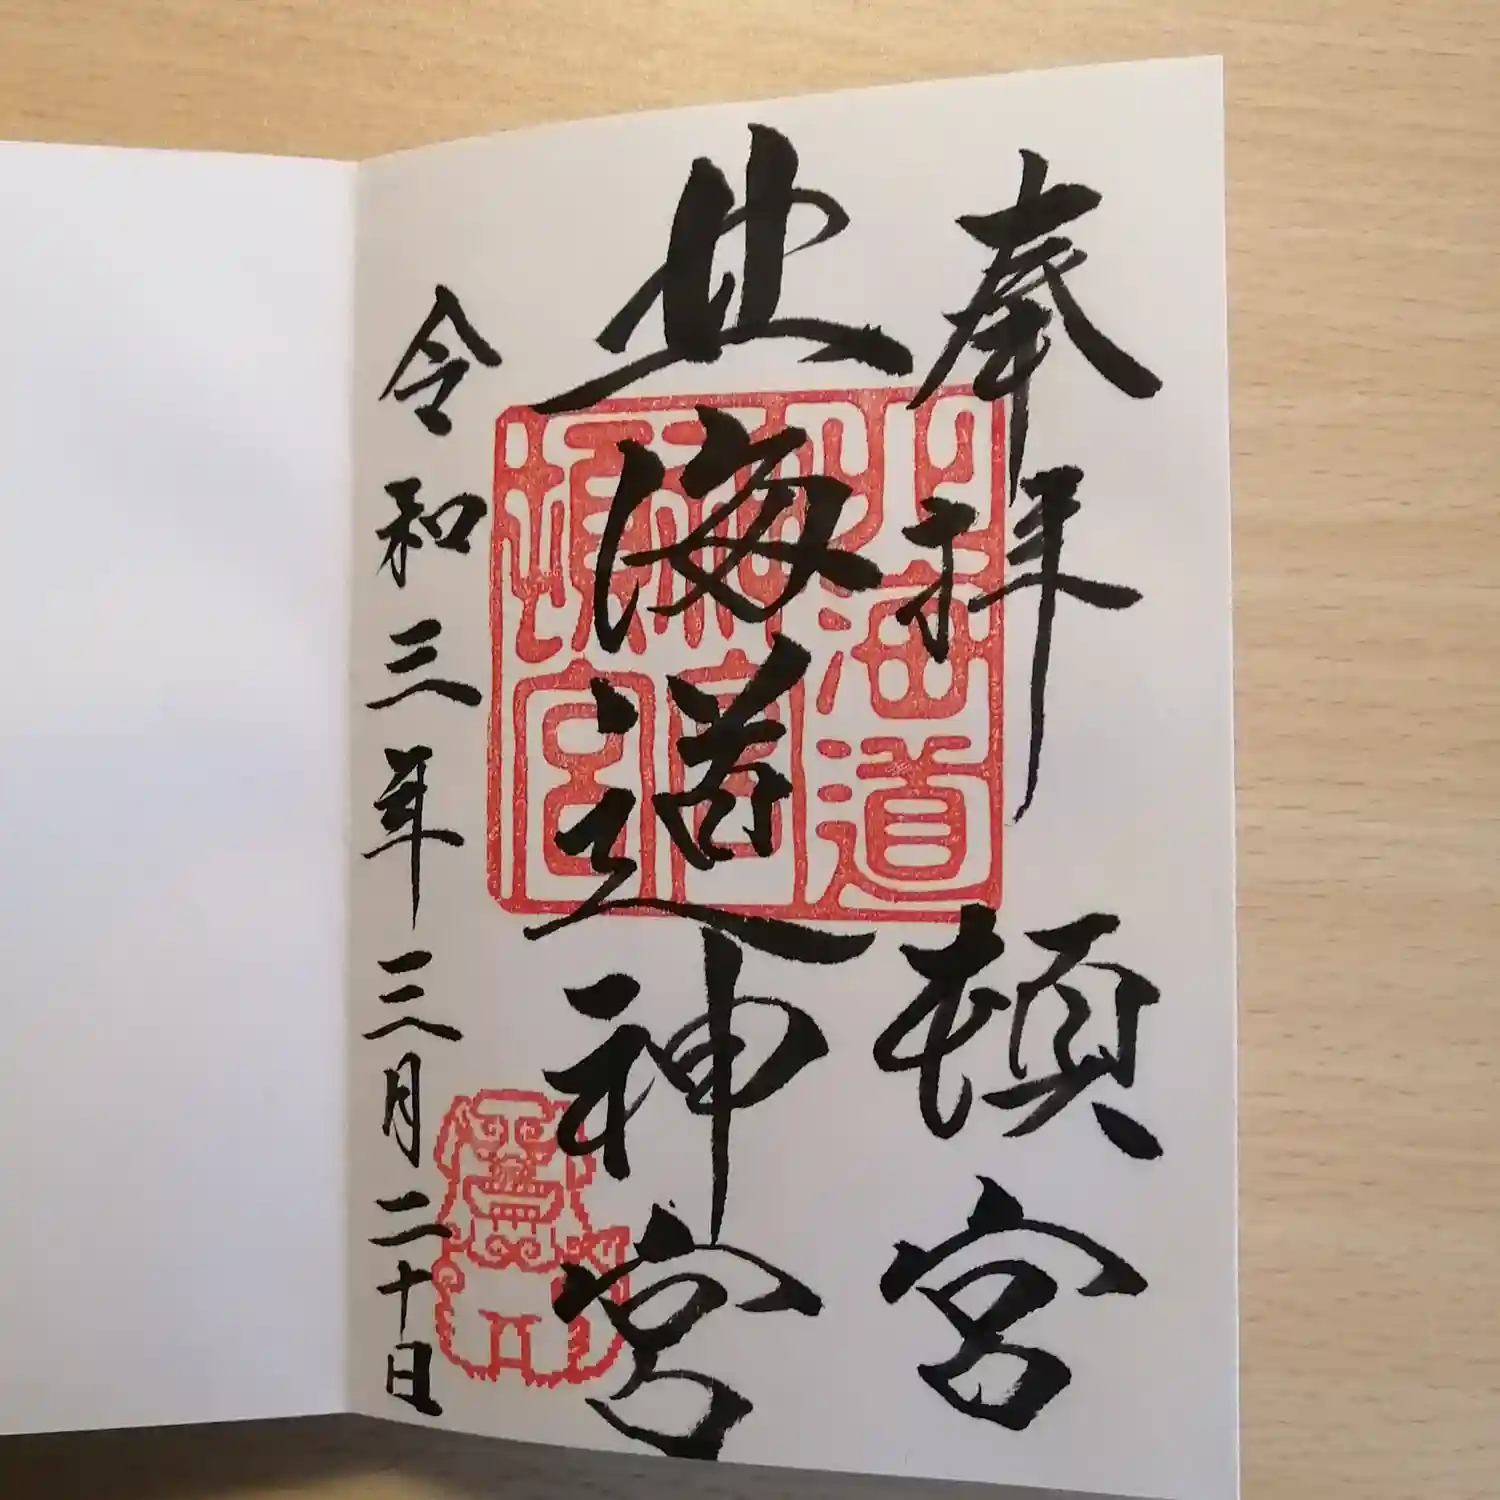 奉拝 頓宮
北海道神宮
令和三年三月二十日
北海道
神宮
頓宮